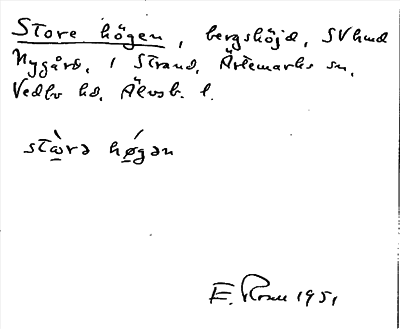 Store högen, bergshöjd, SV om
Nygård, i Strand, Ärtemarks sn,
Vedbo hd, Älvsb. l.
stὼrə hǿgən
E. Rosen 1951